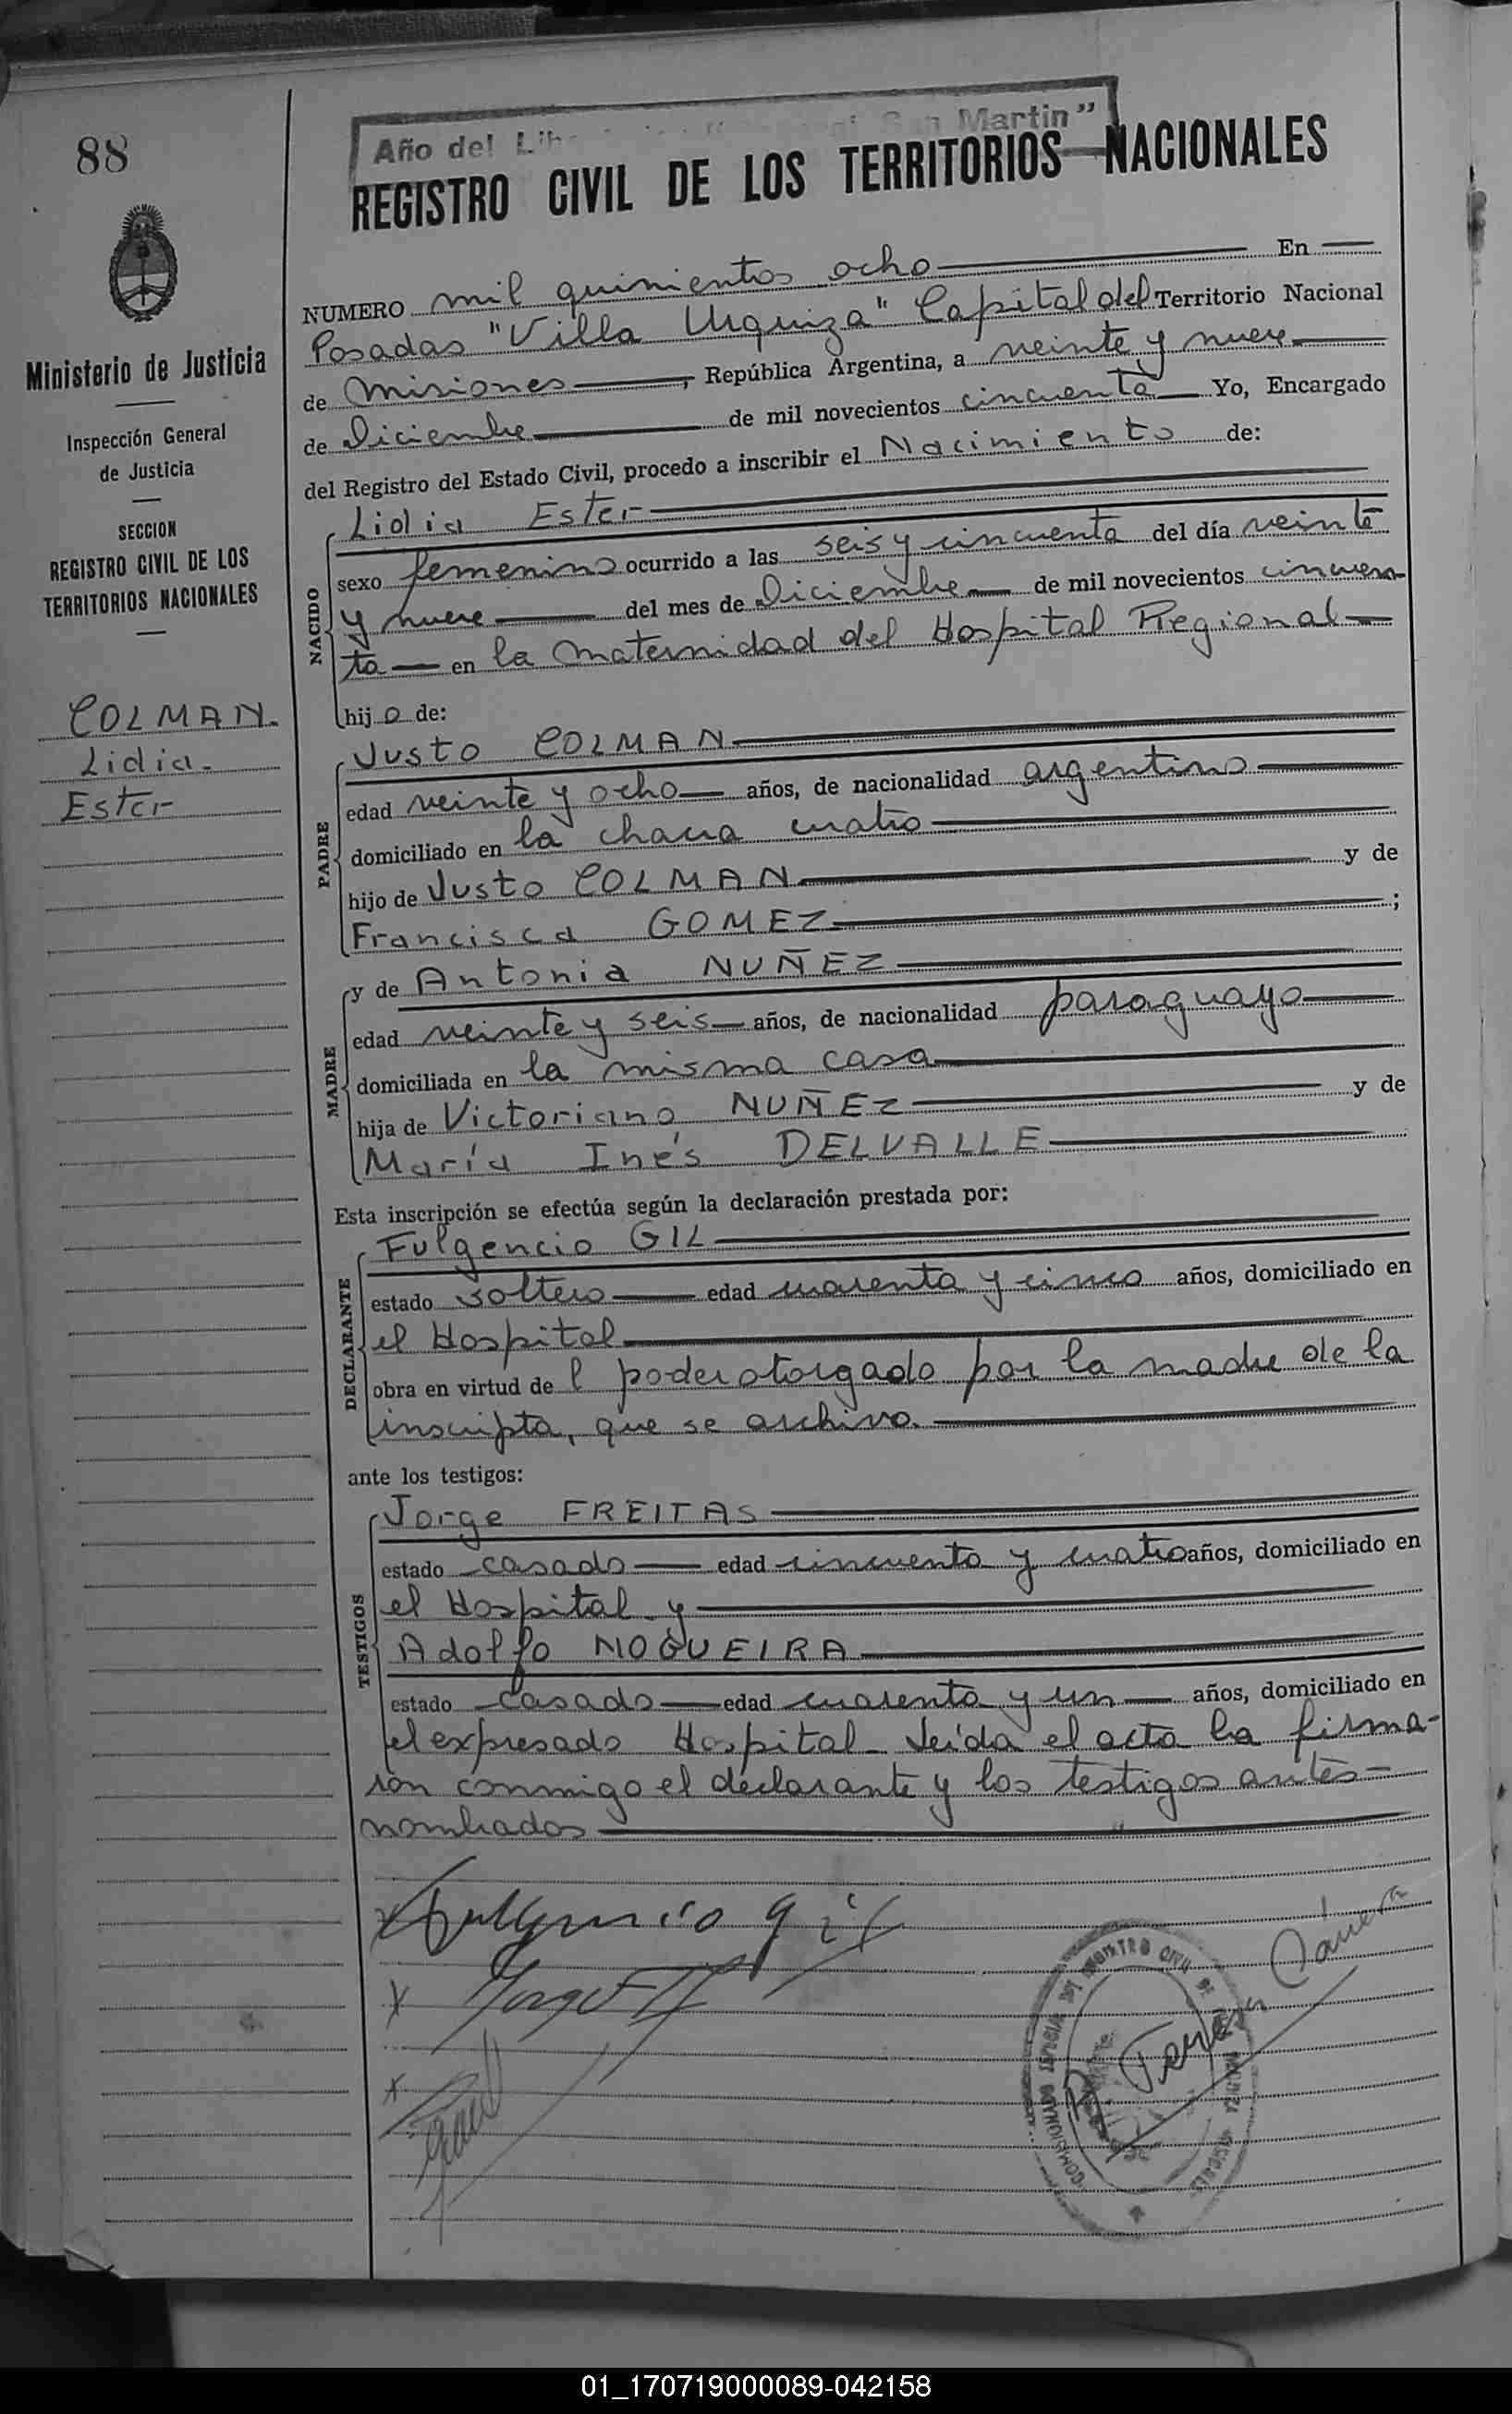 88
Año del Libertador General San Martin"
REGISTRO CIVIL DE LOS TERRITORIOS NACIONALES
Ministerio de Justicia
Inspección General
de Justicia
SECCION
REGISTRO CIVIL DE LOS
TERRITORIOS NACIONALES
COLMAN.
Lidia.
Ester
NUMERO mil quinientos ocho En
Posadas "Villa Urquiza" Capital del Territorio Nacional
de Misiones, República Argentina, a veinte y nueve
de Diciembre de mil novecientos cincuenta Yo, Encargado
del Registro del Estado Civil, procedo a inscribir el Nacimiento de:
NACIDO
Lidia Ester
sexo femenino ocurrido a las seis y cincuenta del día veinte
y nueve del mes de Diciembre de mil novecientos cincuen
ta en la Maternidad del Hospital Regional
hija de:
PADRE
Justo COLMAN
edad veinte y ocho años, de nacionalidad argentino
domiciliado en la chacra cuatro
hijo de Justo COLMAN y de
Francisca GOMEZ ;
MADRE
y de Antonia NUÑEZ
edad veinte y seis años, de nacionalidad paraguaya
domiciliada en la misma casa
hija de Victoriano NUÑEZ y de
María Inés DELVALLE
Esta inscripción se efectúa según la declaración prestada por:
DECLARANTE
Fulgencio GIL
estado soltero edad cuarenta y cinco años, domiciliado en
el Hospital
obra en virtud de l poder otorgado por la madre de la
inscripta, que se archiva.
ante los testigos:
TESTIGOS
Jorge FREITAS
estado casado edad cincuenta y cuatro años, domiciliado en
el Hospital y
Adolfo NOGUEIRA
estado casado edad cuarenta y un años, domiciliado en
el expresado Hospital Leída el acta la firma-
ron conmigo el declarante y los testigos antes-
nombrados
Fulgencio gil
Jorge
REGISTRO CIVIL DE
01_170719000089-042158